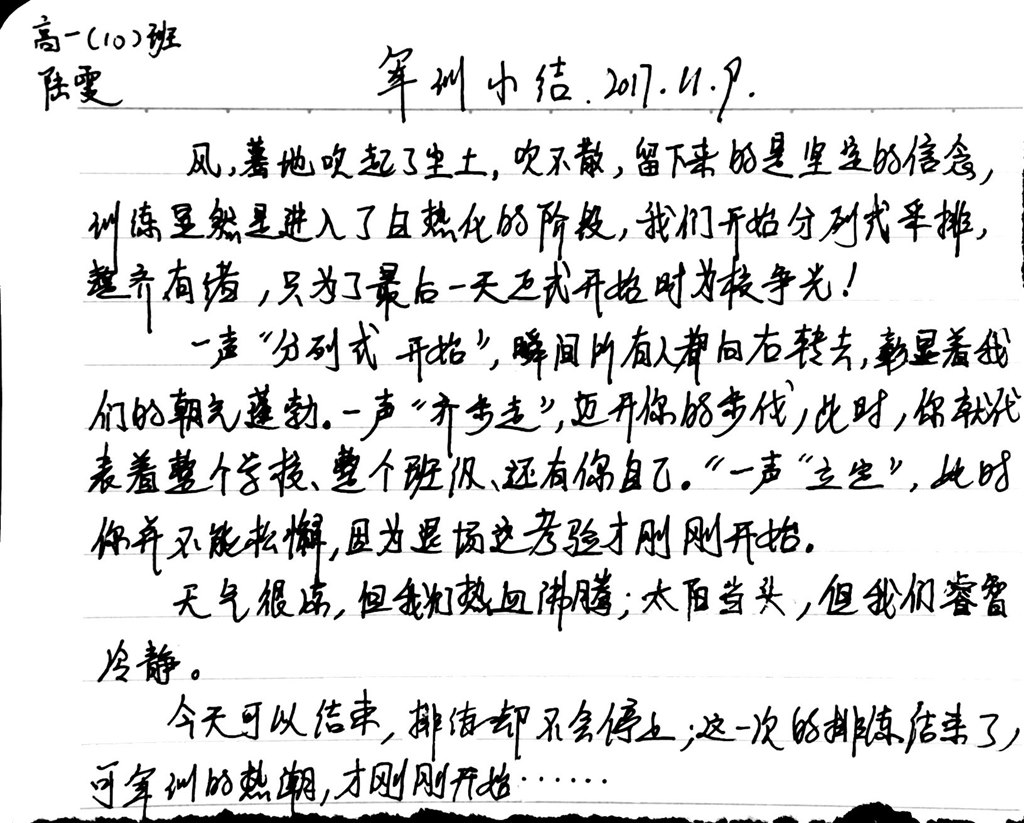 高一(10)班
陆雯
军训小结. 2017.11.9.
风,蓦地吹起了尘土,吹不散,留下来的是坚定的信念,
训练显然是进入了白热化的阶段,我们开始分列式采排,
整齐有绪,只为了最后一天正式开始时为校争光!
一声“分列式 开始”,瞬间所有人都向右转去,彰显着我
们的朝气蓬勃。一声“齐步走”,迈开你的步伐,此时,你就代
表着整个学校、整个班级、还有你自己。“一声“立定”,此时
你并不能松懈,因为退场这考验才刚刚开始。
天气很凉,但我们热血沸腾;太阳当头,但我们睿智
冷静。
今天可以结束,排练却不会停止;这一次的排练结束了,
可军训的热潮,才刚刚开始……